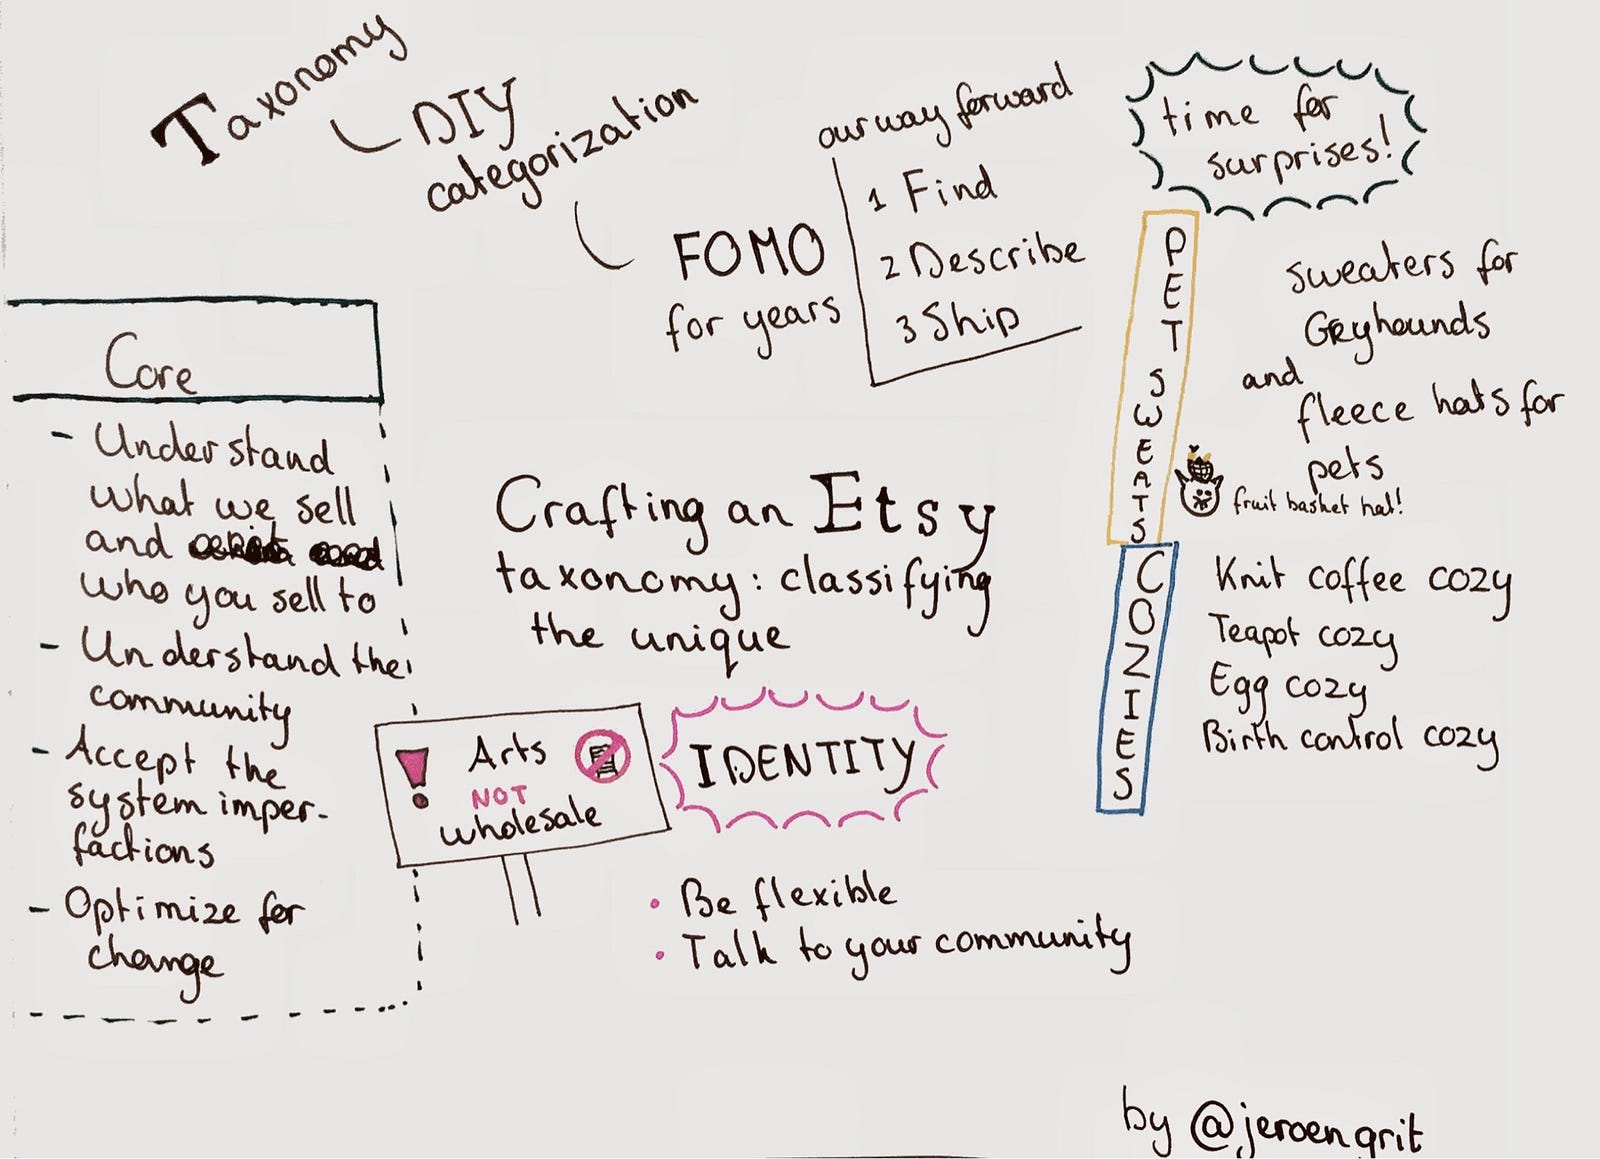 Taxonomy
DIY
categorization
FOMO
for years
our way forward
1 Find
2 Describe
3 Ship
time for
surprises!
PET SWEATS
sweaters for
Greyhounds
and
fleece hats for
pets
fruit basket hat!
COZIES
Knit coffee cozy
Teapot cozy
Egg cozy
Birth control cozy
Core
- Understand
what we sell
and
who you sell to
- Understand the
community
- Accept the
system imper-
factions
- Optimize for
change
Crafting an Etsy
taxonomy: classifying
the unique
! Arts
NOT
wholesale
IDENTITY
• Be flexible
• Talk to your community
by @jeroengrit